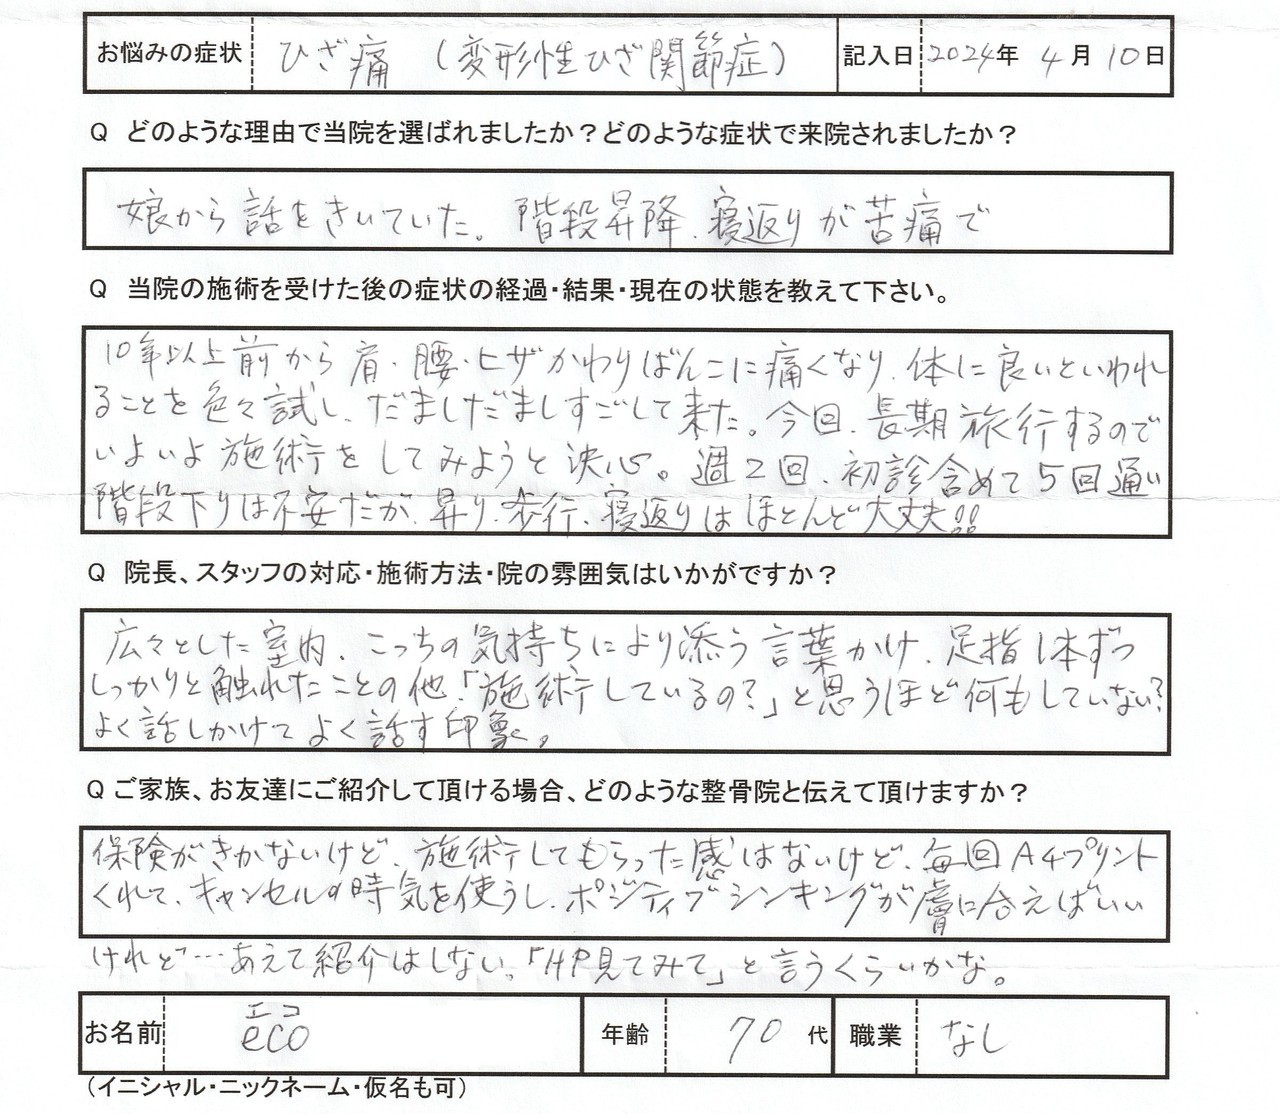 お悩みの症状 ひざ痛 (変形性ひざ関節症) 記入日 2024年 4月 10日
Q どのような理由で当院を選ばれましたか？どのような症状で来院されましたか？
娘から話をきいていた。階段昇降、寝返りが苦痛で
Q 当院の施術を受けた後の症状の経過・結果・現在の状態を教えて下さい。
10年以上前から肩・腰・ヒザかわりばんこに痛くなり、体に良いといわれ
ることを色々試し、だましだましすごして来た。今回、長期旅行するので
いよいよ施術をしてみようと決心。週2回、初診含めて5回通い
階段下りは不安だが、昇り、歩行、寝返りはほとんど大丈夫!!
Q 院長、スタッフの対応・施術方法・院の雰囲気はいかがですか？
広々とした室内、こっちの気持ちにより添う言葉かけ、足指1本ずつ
しっかりと触れたことの他、「施術しているの?」と思うほど何もしていない?
よく話しかけてよく話す印象。
Q ご家族、お友達にご紹介して頂ける場合、どのような整骨院と伝えて頂けますか？
保険がきかないけど、施術してもらった感はないけど、毎回A4プリント
くれて、キャンセルの時気を使うし、ポジティブシンキングが膚に合えばいい
けれど…あえて紹介はしない。「HP見てみて」と言うくらいかな。
エコ
お名前 eco 年齢 70代 職業 なし
（イニシャル・ニックネーム・仮名も可）